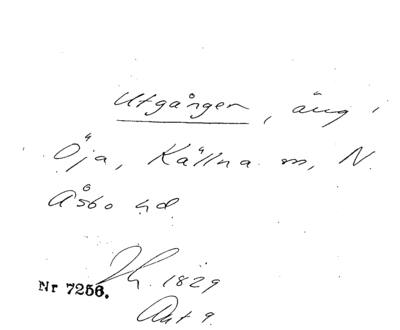 Utgången, äng i
Öja, Källna sn, N.
Åsbo hd
Nr 7256. Lh. 1829
Akt 9.